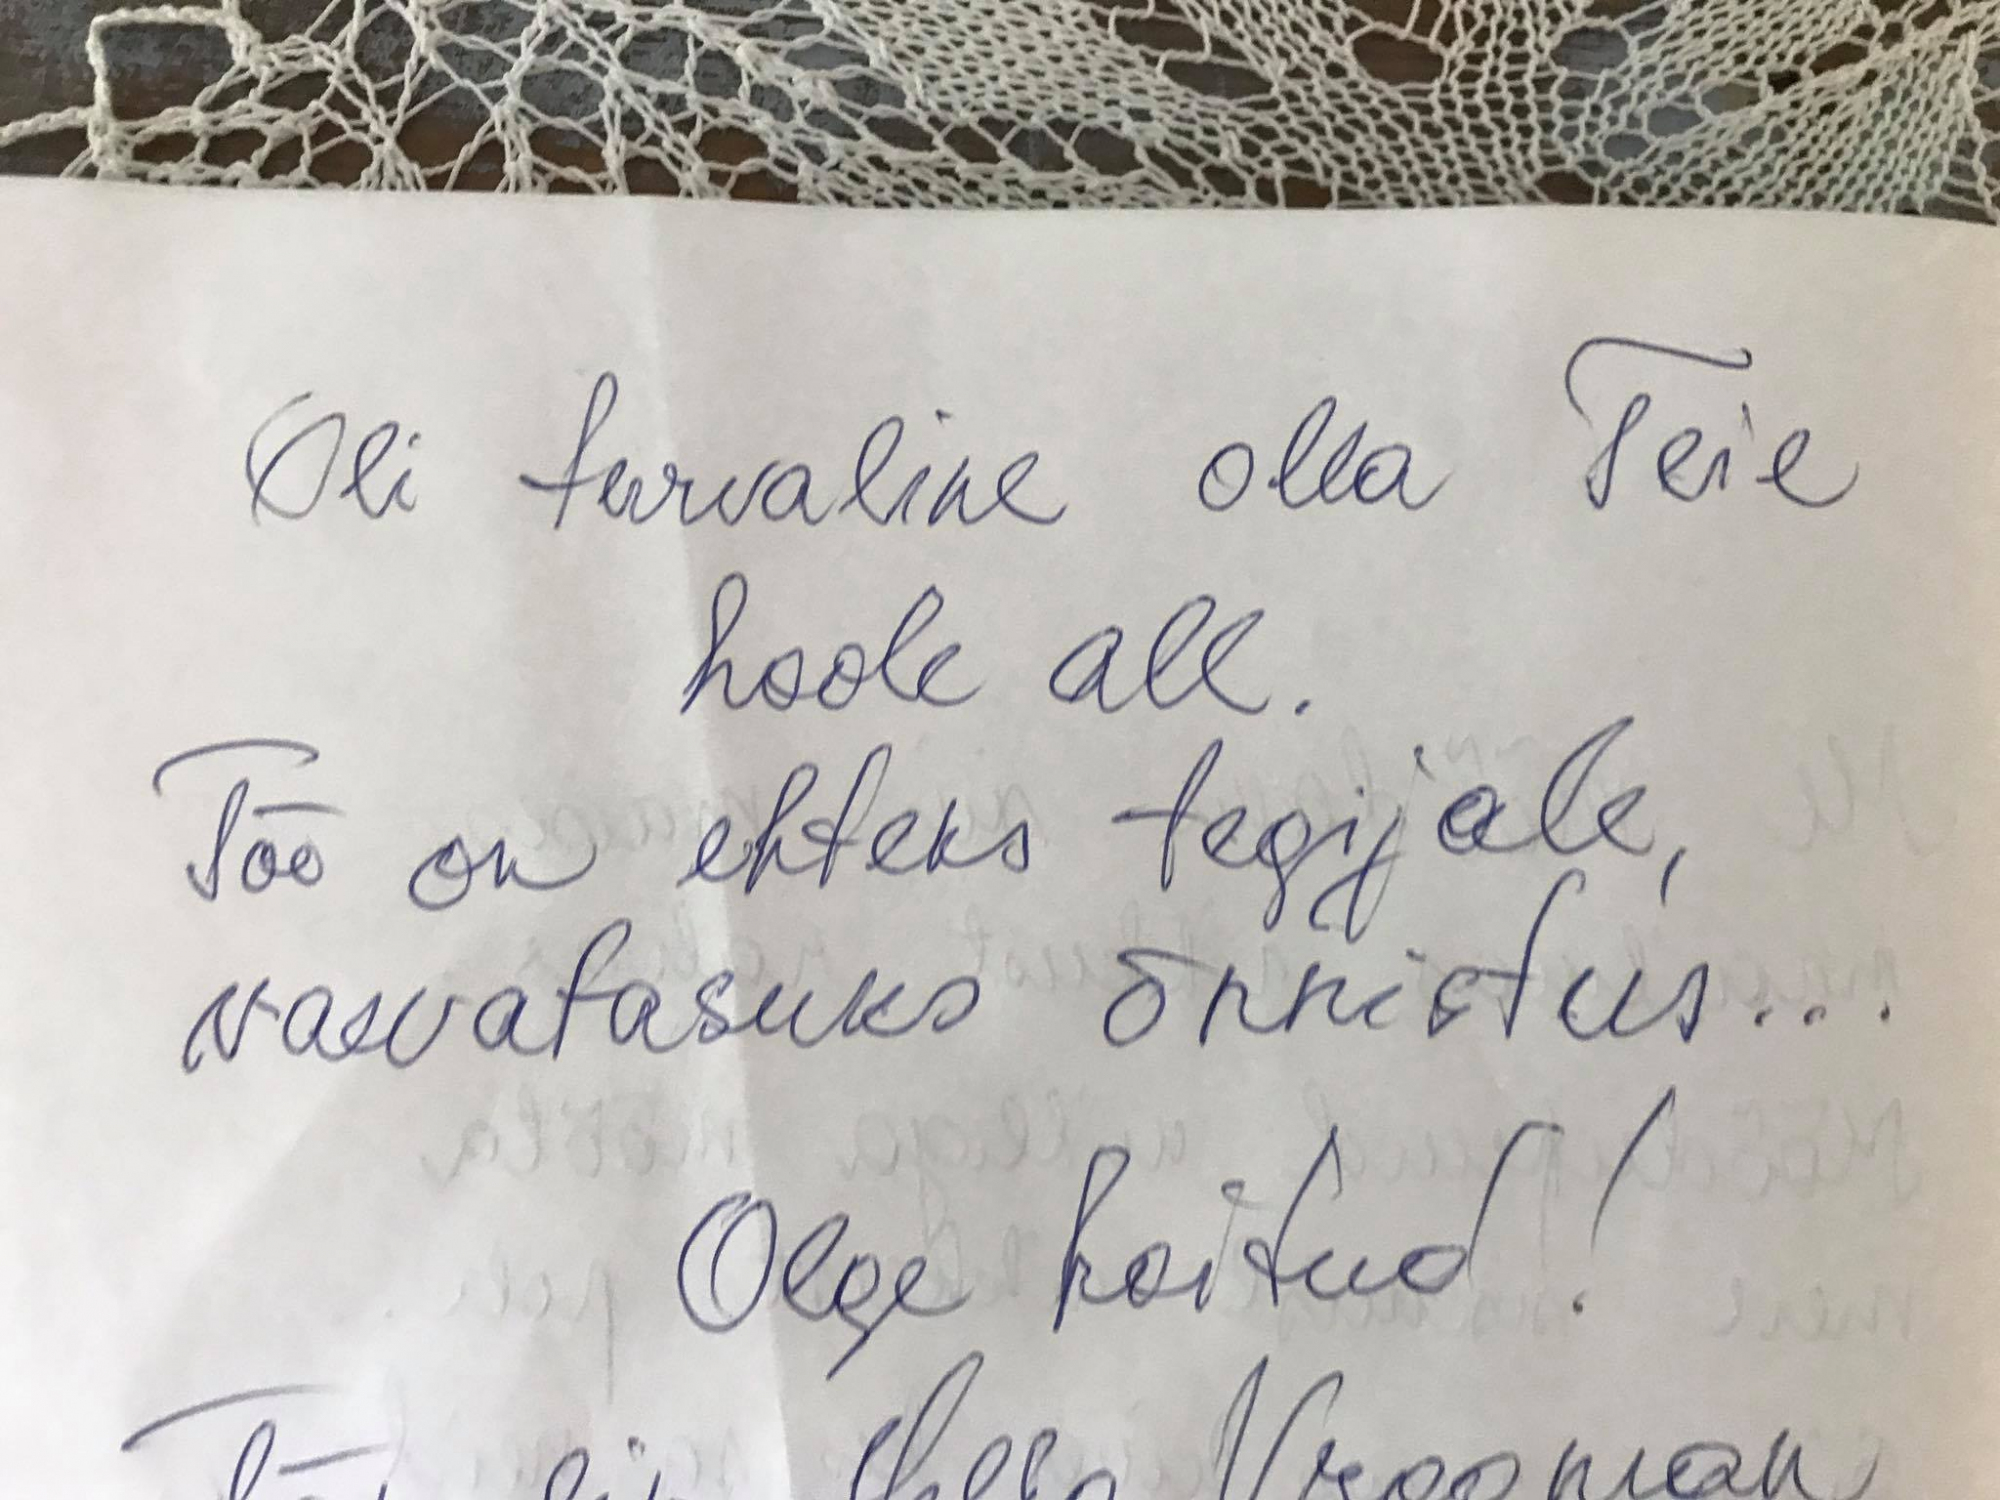 Oli turvaline olla Teie
hoole all.
Töö on ehteks tegijale,
vasvatasuks õnnistus...
Olge hoitud!
Vrooman